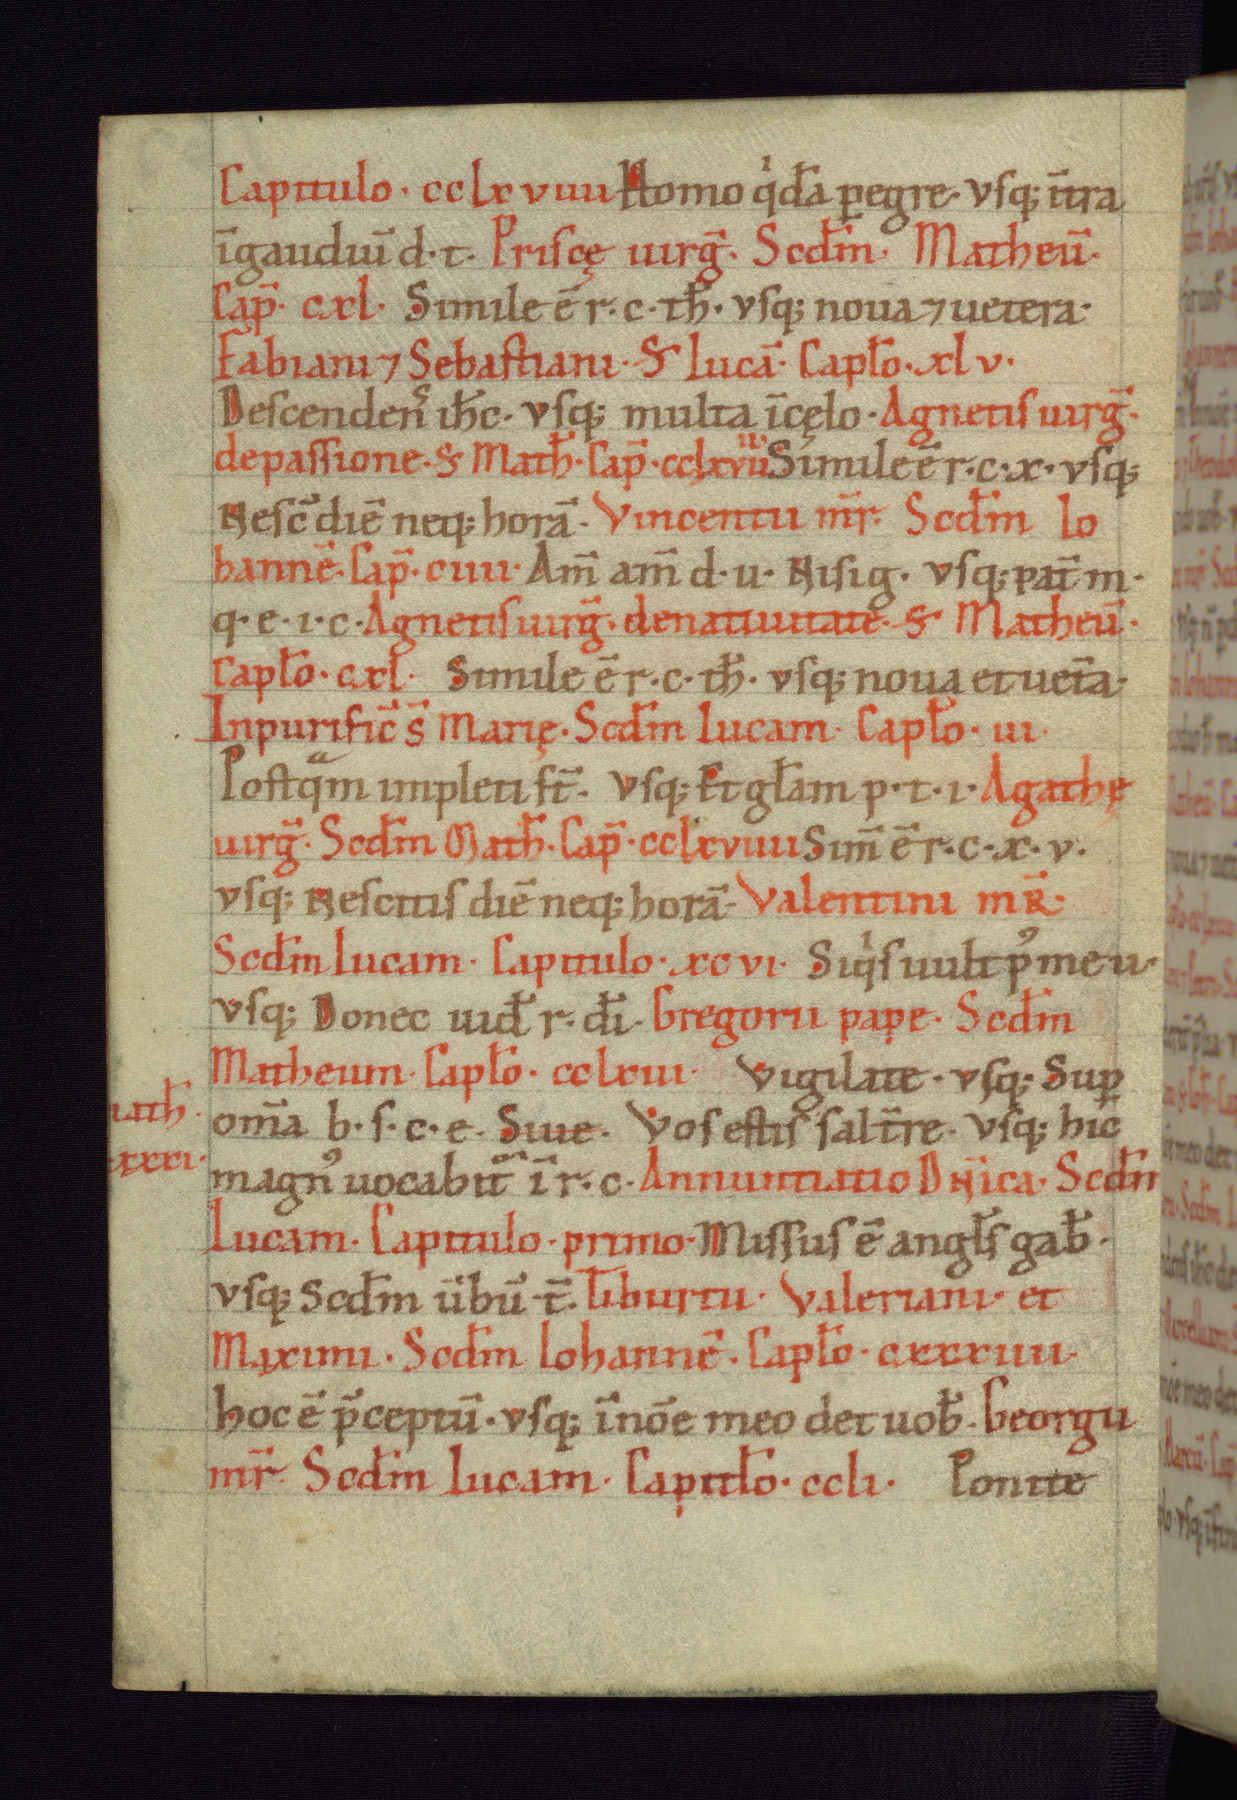 Capitulo · cclxviiii Homo q̇da̅ p̲egre vsq; i̅t̅ra
i̅gaudiu̅ d · t · Priscę uirg̅ · Scd̅m · Matheu̅ ·
Cap̅ · cxl · Simile e̅ r · c · th̅ · vsq; noua ⁊ uetera ·
Fabiani ⁊ Sebastiani · & Luca̅ · Capl̅o · xlv ·
Descendens ih̅c · vsq; multa i̅ cęlo · Agnetis uirg̅ ·
de passione · & Math̅ · Cap̅ · cclxviiii Simile e̅ r · c · x · vsq;
Nesc̅ die̅ neq; hora̅ · Vincentii m̅r · Scd̅m Io
hanne̅ · Cap̅ · ciiii · Am̅ am̅ d · u · Nisi g · vsq; pat̅ m ·
q · e · i · c · Agnetis uirg̅ · de natiuitate · & Matheu̅ ·
Capl̅o · cxl · Simile e̅ r · c · th̅ · vsq; noua et uet̅a ·
In purific̅ s̅ Marię · Scd̅m Lucam · Capl̅o · iii ·
Postqᵃm impleti st̅ · vsq; Et gl̅am p · t · i · Agathę
uirg̅ · Scd̅m Math̅ · Cap̅ · cclxviiii Sim̅ e̅ r · c · x · v ·
vsq; Nescitis die̅ neq; hora̅ · Valentini m̅R ·
Scd̅m Lucam · Capitulo · xcvi · Siqͥs uult p᾽ me u ·
vsq; Donec uid̅ r · d̅i · Gregorii pape · Scd̅m
Matheum · Capl̅o · cclxiii · Vigilate · vsq; Sup̲
om̅a b · s · c · e · Siue · Vos estis sal t̅re · vsq; hic
math̅ ·
xxxi ·
magn᾽ uocabit̅ i̅ r · c · Annuntiatio Dn̅ica · Scd̅m
Lucam · Capitulo · primo · Missus e̅ angl̅s gab̅ ·
vsq; Scd̅m u̅bu̅ t̅ · Tiburtii · Valeriani · et
Maximi · Scd̅m Iohanne̅ · Capl̅o · cxxxiiii ·
hoc e̅ p̅ceptu̅ · vsq; i̅ no̅e meo det uob̅ · Georgii
m̅r · Scd̅m Lucam · Capitl̅o · ccli · Ponite